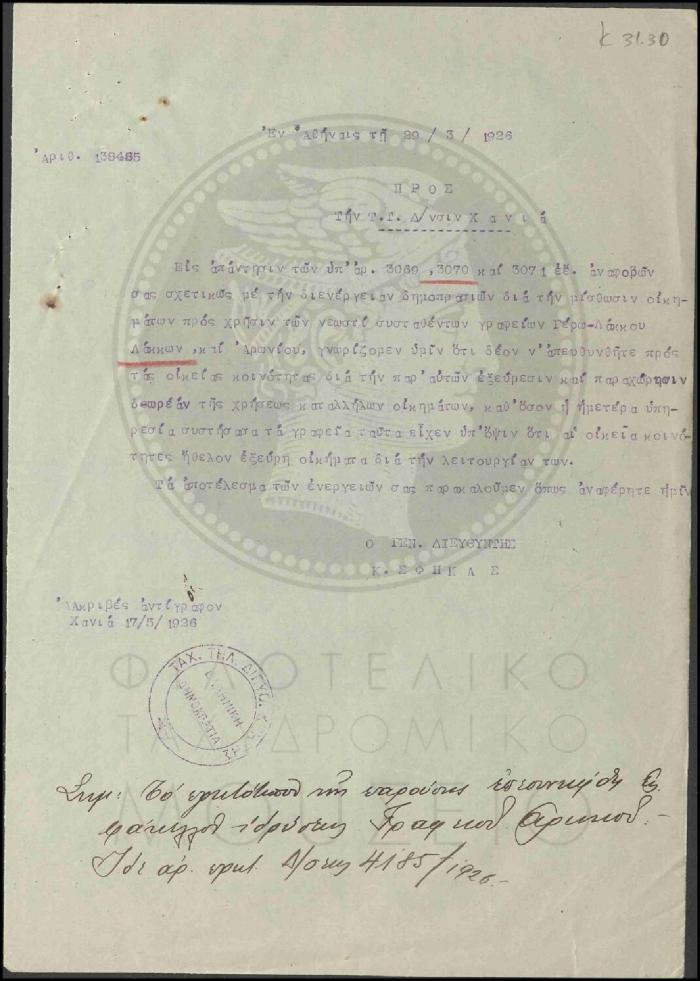 K 31.30
Ἐν Ἀθήναις τῇ 29/3/1926
Ἀριθ. 138485
ΠΡΟΣ
Τήν Τ.Τ. Δ/νσιν Χανιά
Εἰς ἀπάντησιν τῶν ὑπ' ἀρ. 3069 ,3070 καί 3071 ἐξ. ἀναφοβῶν
σας σχετικῶς μέ τήν διενέργειαν δημοπρασιῶν διά τήν μίσθωσιν οἰκη-
μάτων πρός χρῆσιν τῶν νεωστί συσταθέντων γραφείων Γέρω-Λάκκου
Λάκκων ,καί Ἀρωνίου, γνωρίζομεν ὑμῖν ὅτι δέον ν' ἀπευθυνθῆτε πρός
τάς οἰκείας κοινότητας διά τήν παρ' αὐτῶν ἐξεύρεσιν καί παραχώρησιν
δωρεάν τῆς χρήσεως καταλλήλων οἰκημάτων, καθ' ὅσον ἡ ἡμετέρα ὑπη-
ρεσία συστήσασα τά γραφεῖα ταῦτα εἶχεν ὑπ' ὄψιν ὅτι αἱ οἰκεῖα κοινό-
τητες ἤθελον ἐξεύρη οἰκήματα διά τήν λειτουργίαν των.
Τά ἀποτέλεσμα τῶν ἐνεργειῶν σας παρακαλοῦμεν ὅπως ἀναφέρητε ἡμῖν
Ο ΓΕΝ. ΔΙΕΥΘΥΝΤΗΣ
Κ. ΣΦΗΚΑΣ
Ἀκριβές ἀντίγραφον
Χανιά 17/5/1926
ΤΑΧ. ΤΗΛ. ΔΙΕΥΘ.
ΕΛΛΗΝΙΚΗ
ΔΗΜΟΚΡΑΤΙΑ
ΦΙΛΟΤΕΛΙΚΟ
ΤΑΧΥΔΡΟΜΙΚΟ
ΜΟΥΣΕΙΟ
Σημ: Τό πρωτότυπον τῆς παρούσης ἐπισυνήφθη εἰς
φάκελλον ἱδρύσεως Γραφείου Ἀρωνίου.-
Ἴδε ἀρ. πρωτ. Δ/σεως 4185/1926.-